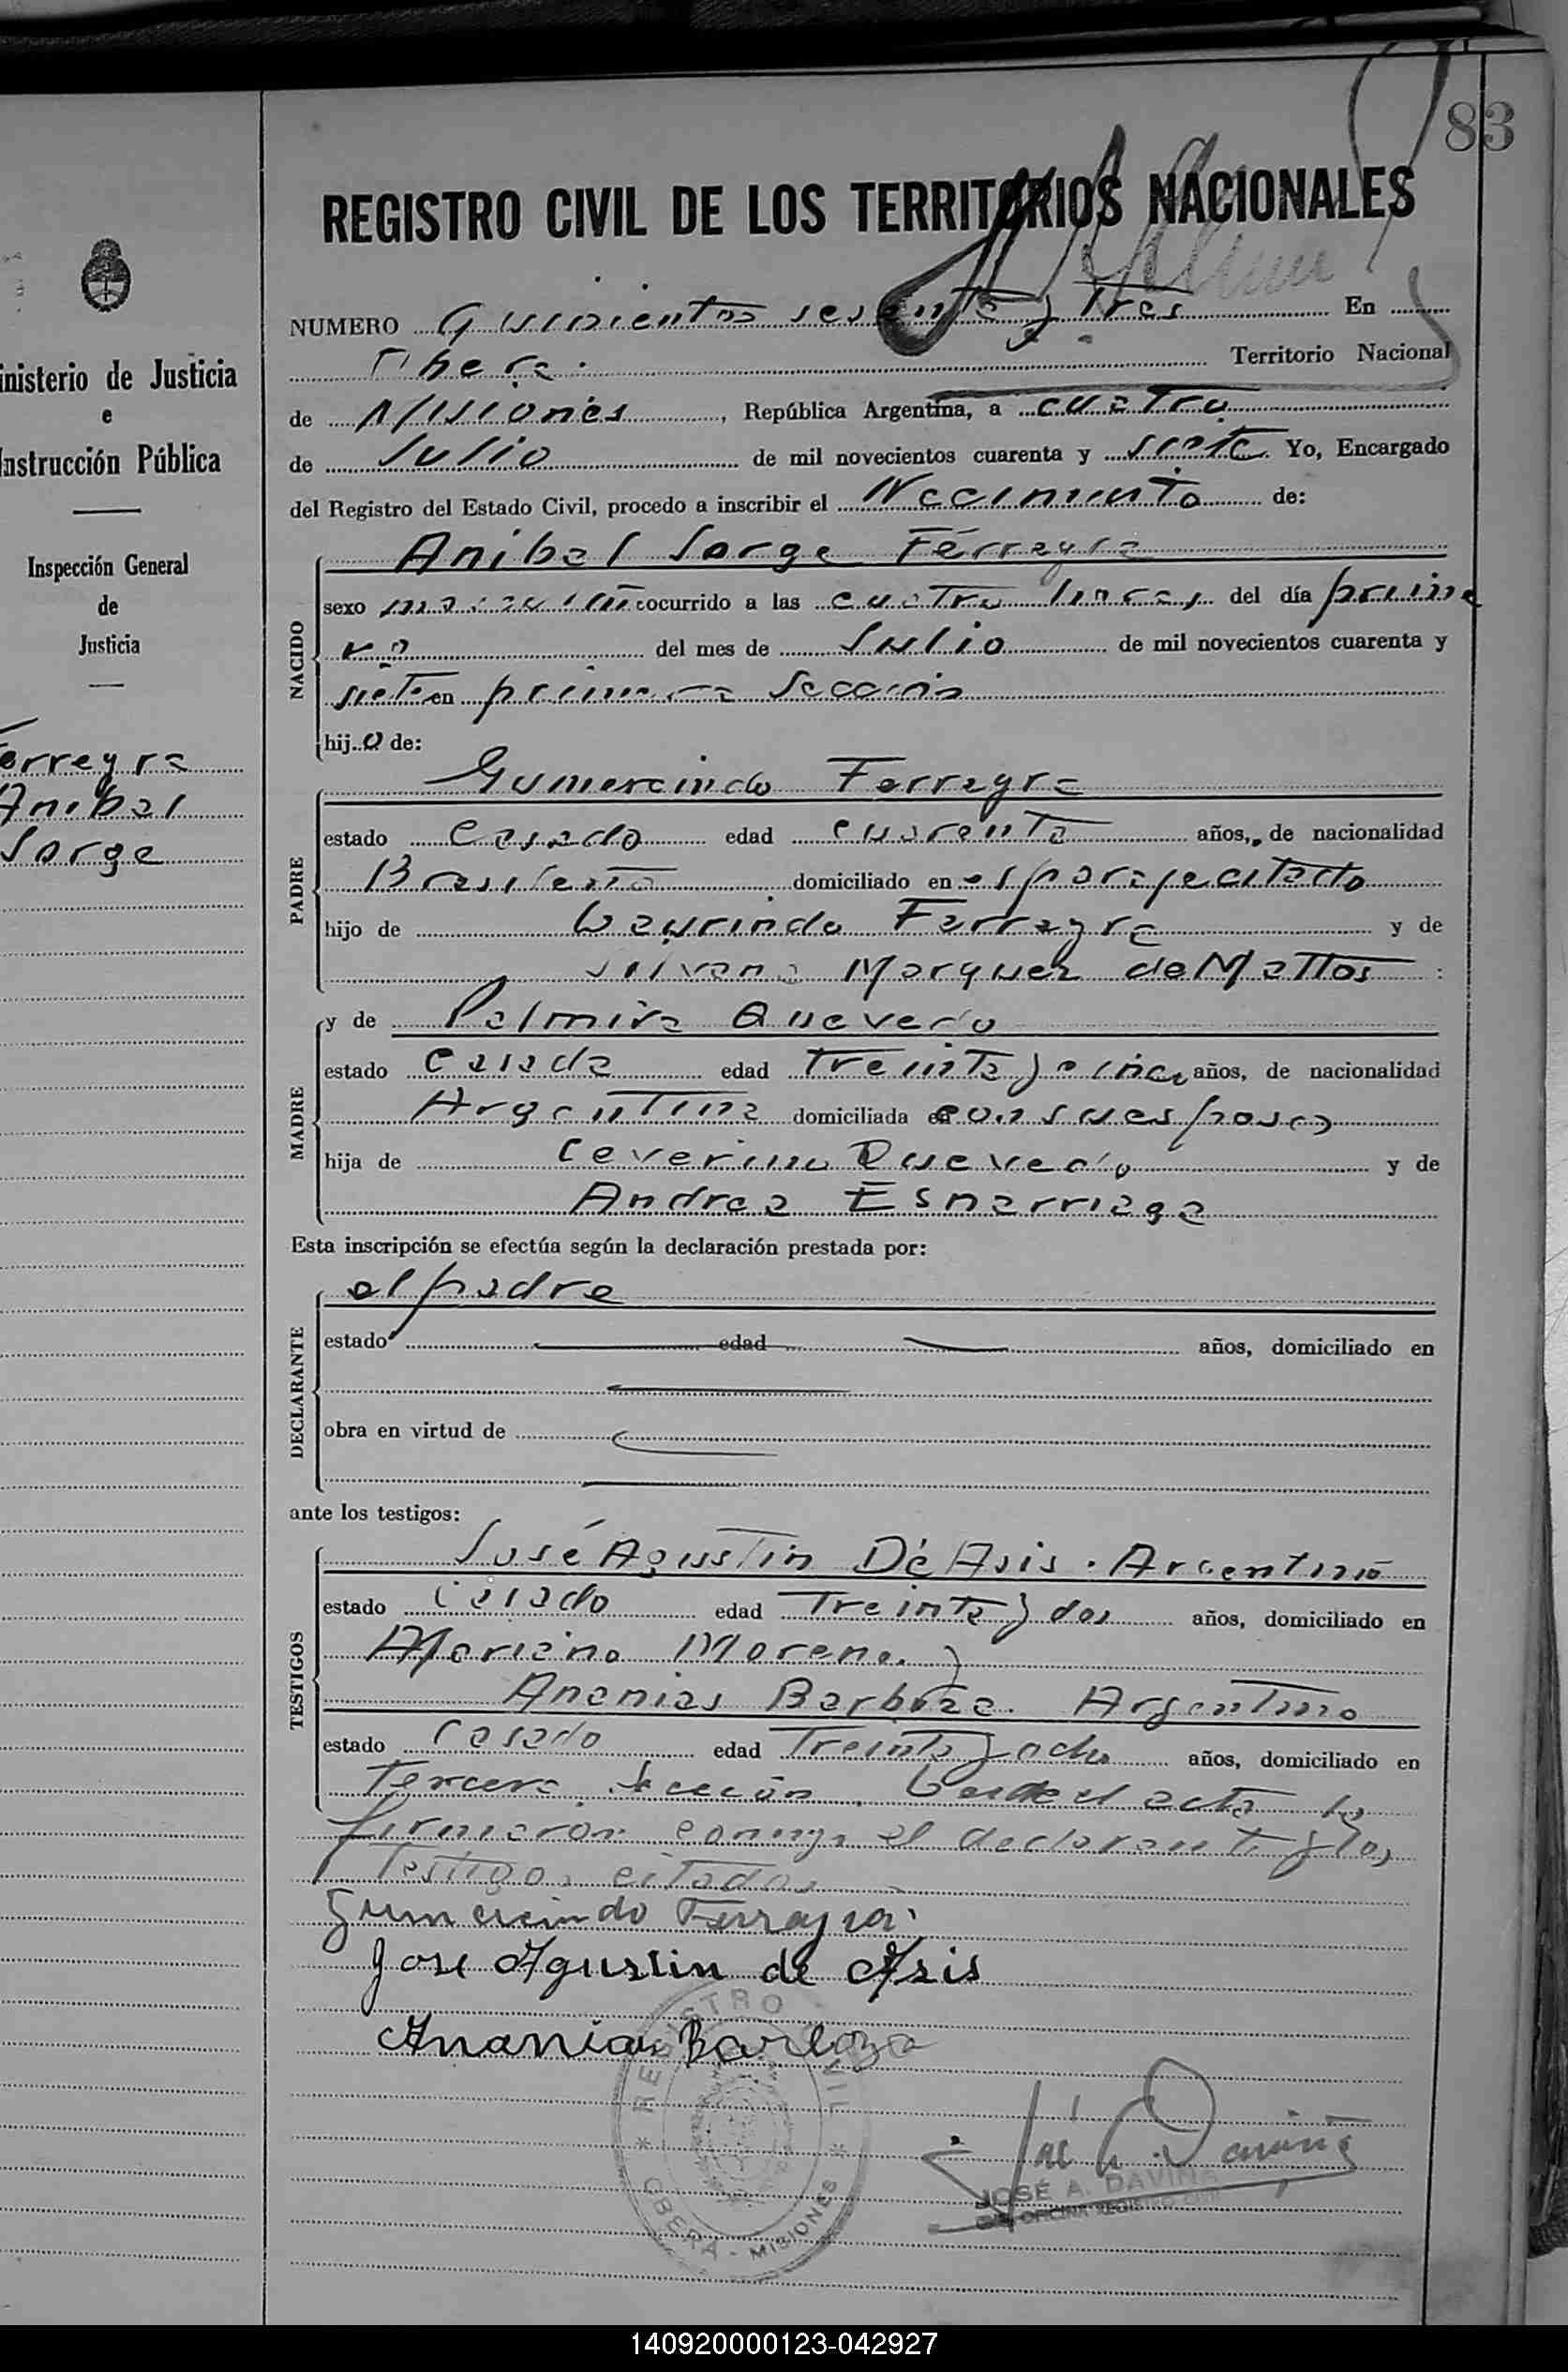 83
REGISTRO CIVIL DE LOS TERRITORIOS NACIONALES
NUMERO Quinientos sesenta y Tres En
Obera. Territorio Nacional
de Misiones, República Argentina, a cuatro
de Julio de mil novecientos cuarenta y siete Yo, Encargado
del Registro del Estado Civil, procedo a inscribir el Nacimiento de:
Anibal Jorge Ferreyra
NACIDO
sexo masculino ocurrido a las cuatro horas del día prime
ro del mes de Julio de mil novecientos cuarenta y
siete en primera Sección
hijo de:
Gumercindo Ferreyra
PADRE
estado casado edad cuarenta años, de nacionalidad
Brasileña domiciliado en
hijo de Laurindo Ferreyra y de
Silvana Marquez de Mattos
MADRE
y de Palmira Quevedo
estado casada edad Treinta y cinco años, de nacionalidad
Argentina domiciliada con su esposo
hija de Ceverino Quevedo y de
Andrea Esnarriaga
Esta inscripción se efectúa según la declaración prestada por:
DECLARANTE
el padre
estado edad años, domiciliado en
obra en virtud de
ante los testigos:
TESTIGOS
José Agustin De Asis. Argentino
estado casado edad Treinta y dos años, domiciliado en
Mariano Moreno y
Ananias Barboza. Argentino
estado casado edad Treinta y ocho años, domiciliado en
Tercera Sección. el acta la
firmaron conmigo el declarante y los
Testigos citados
Gumercindo Ferreyra
Jose Agustin de Asis
Ananias Barboza
REGISTRO CIVIL * OBERA - MISIONES *
JOSÉ A. DAVIÑA
OFICINA REGISTRO CIVIL
inisterio de Justicia
e
Instrucción Pública
Inspección General
de
Justicia
Ferreyra
Anibal
Jorge
140920000123-042927